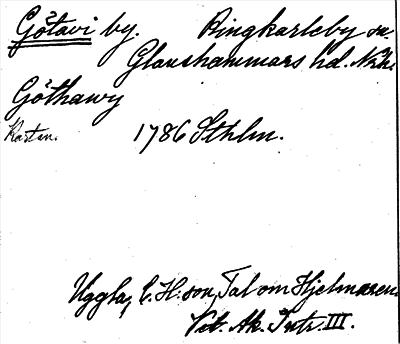 Götavi by. Ringkarleby sn.
Glanshammars hd. Närke
Göthawy
Kartan. 1786 Sthlm.
Uggla, C. H:son, Tal om Hjelmaren
Vet. Ak. Intr. III.